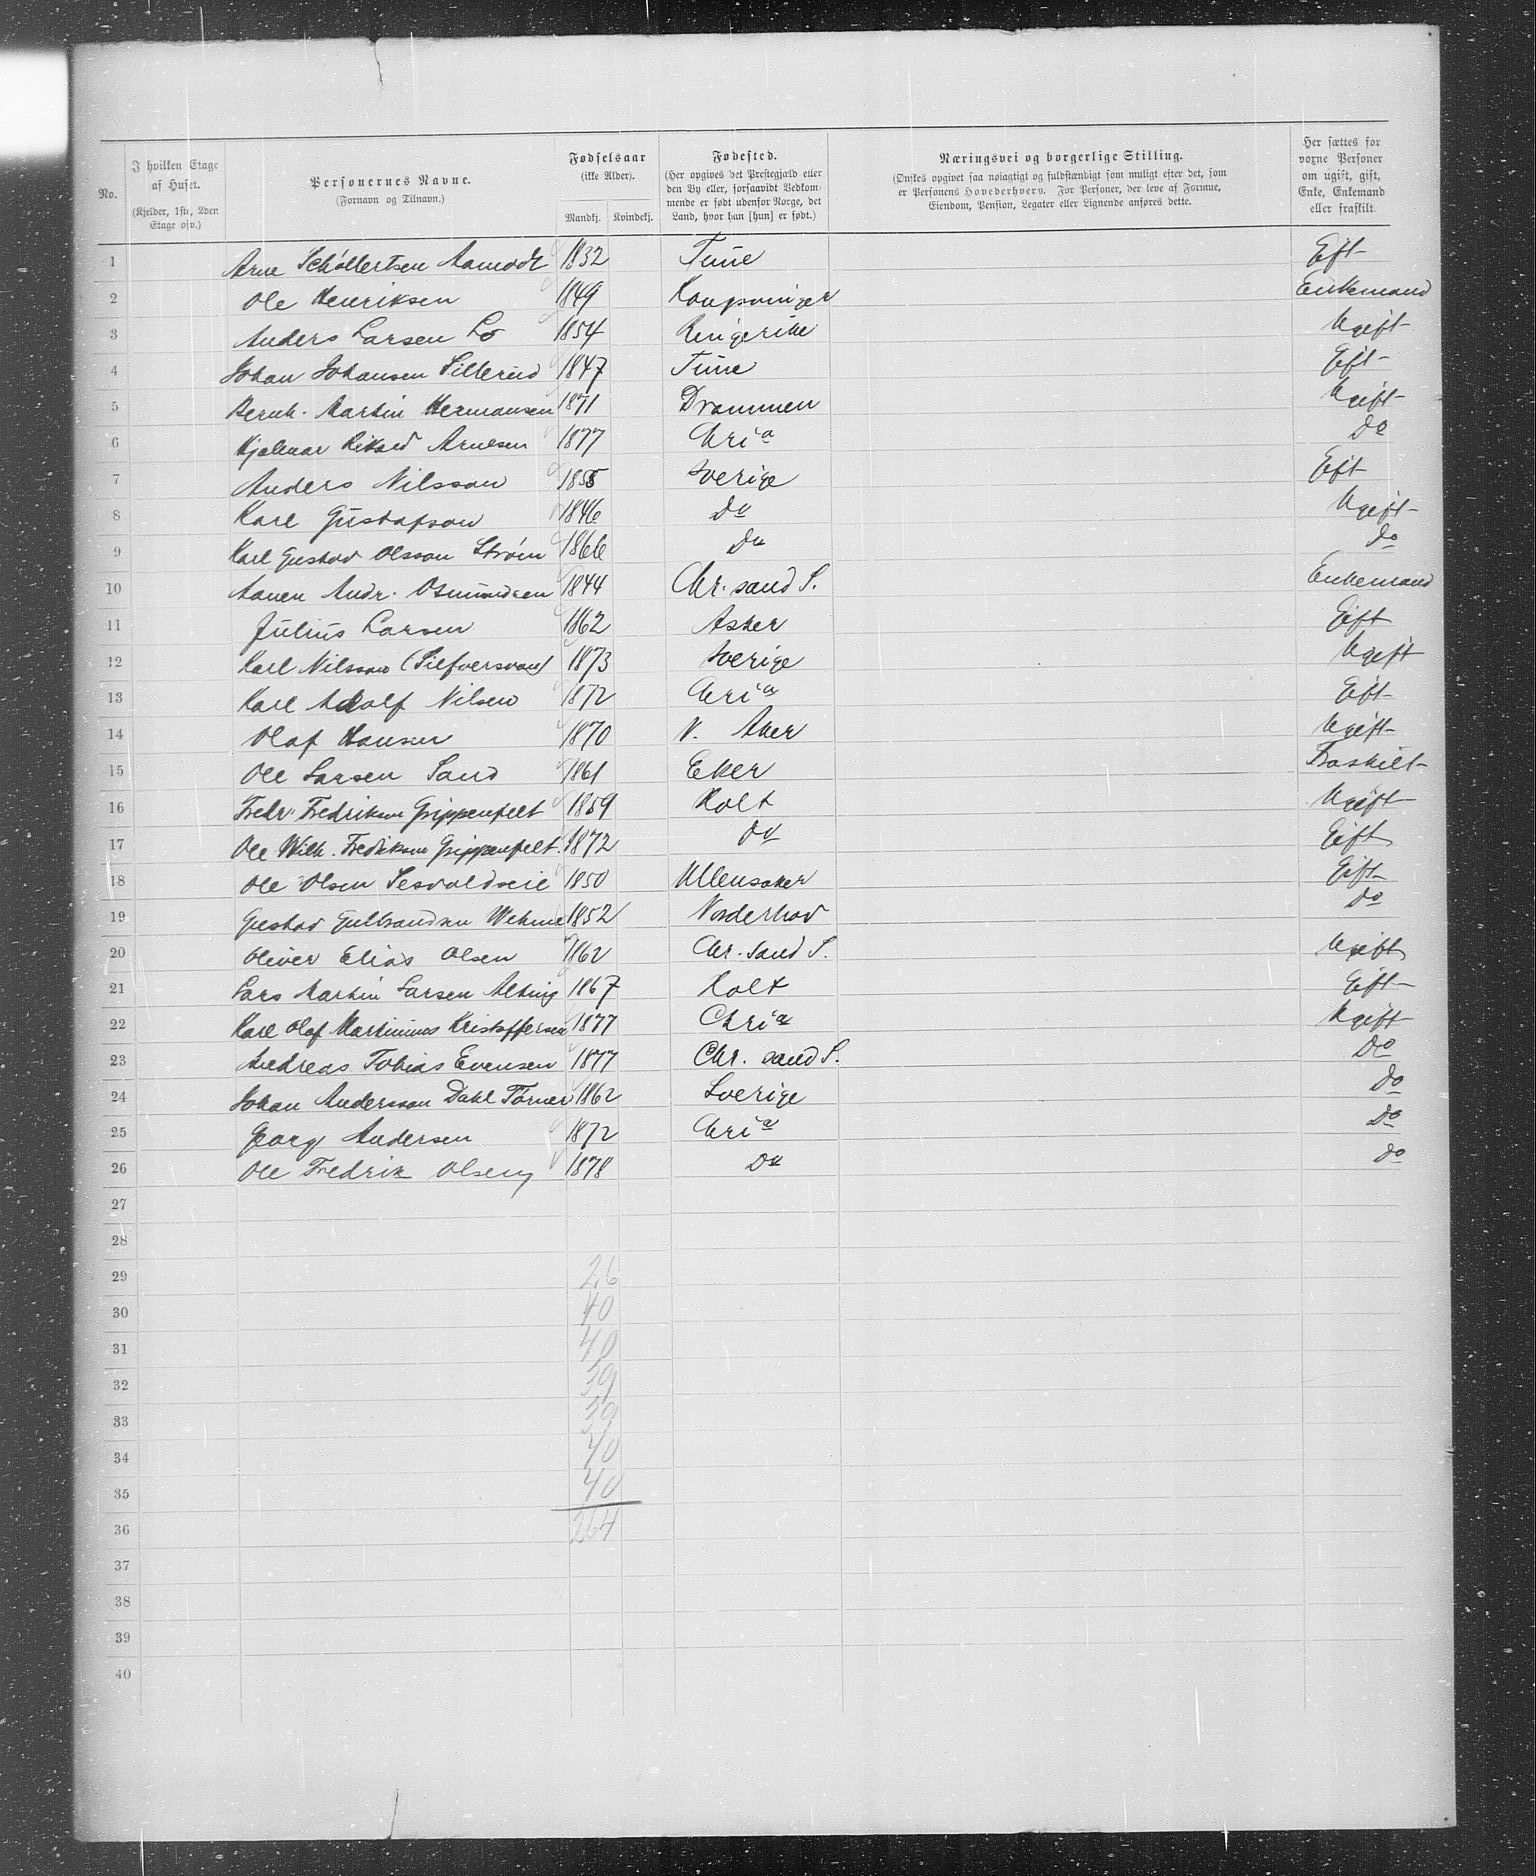 No.
I hvilken Etage af Huset.
(Kjelder, 1ste, 2den Etage osv.)
Personernes Navne.
(Fornavn og Tilnavn.)
Fødselsaar
(ikke Alder).
Mandkj. Kvindekj.
Fødested.
(Her opgives det Prestegjæld eller
den By eller, forsaavidt Vedkom-
mende er født udenfor Norge, det
Land, hvor han [hun] er født.)
Næringsvei og borgerlige Stilling.
(Ønskes opgivet saa nøiagtigt og fuldstændigt som muligt efter det, som
er Personens Hovederhverv. For Personer, der leve af Formue,
Eiendom, Pension, Legater eller Lignende anføres dette.
Her sættes for
voxne Personer
om ugift, gift,
Enke, Enkemand
eller fraskilt
1 Arne Schøllertsen Aamodt 1832 Tune Gift
2 Ole Henriksen 1849 Kongsvinger Enkemand
3 Anders Larsen Lo 1854 Ringerike Ugift
4 Johan Johansen Sillerud 1847 Tune Gift
5 Bernh. Martin Hermansen 1871 Drammen Ugift
6 Hjalmar Rikard Arnesen 1877 Chria Do
7 Anders Nilsson 1855 Sverige Gift
8 Karl Gustafson 1846 Do Ugift
9 Karl Gustav Olsson Strøm 1866 Do Do
10 Aanen Andr. Osmundsen 1844 Chr.sand S. Enkemand
11 Julius Larsen 1862 Asker Gift
12 Karl Nilsson (Silfversvan) 1873 Sverige Ugift
13 Karl Adolf Nilsen 1872 Chria Gift
14 Olaf Hansen 1870 V. Aker Ugift
15 Ole Larsen Sand 1861 Eker Fraskilt
16 Fredr. Fredriksen Grippenfelt 1859 Holt Ugift
17 Ole Wilh. Fredriksen Grippenfelt 1872 Do Gift
18 Ole Olsen Sesvoldseie 1850 Ullensaker Gift
19 Gustav Gulbrandsen Wehme 1852 Norderhov Do
20 Oliver Elias Olsen 1862 Chr.sand S. Ugift
21 Lars Martin Larsen Alting 1867 Holt Gift
22 Karl Olaf Martinius Kristoffersen 1877 Chria Ugift
23 Andreas Tobias Evensen 1877 Chr.sand S. Do
24 Johan Andersson Dahl Törner 1862 Sverige Do
25 Georg Andersen 1872 Chria Do
26 Ole Fredrik Olsen 1878 Do Do
27
28
29 26
30 40
31 40
32 39
33 39
34 40
35 40
36 264
37
38
39
40